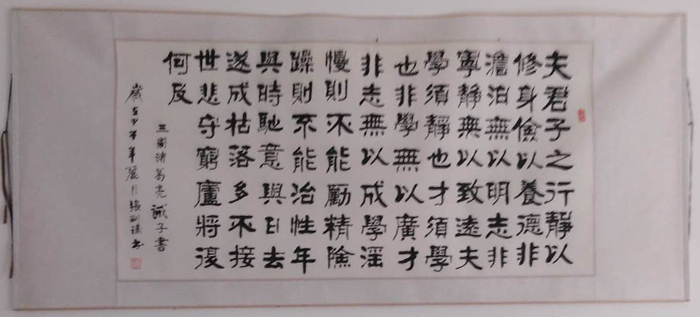 夫君子之行靜以
修身儉以養德非
澹泊無以明志非
寧靜無以致遠夫
學須靜也才須學
也非學無以廣才
非志無以成學淫
慢則不能勵精險
躁則不能治性年
與時馳意與日去
遂成枯落多不接
世悲守窮廬將復
何及
三國諸葛亮誡子書
歲在甲午年書